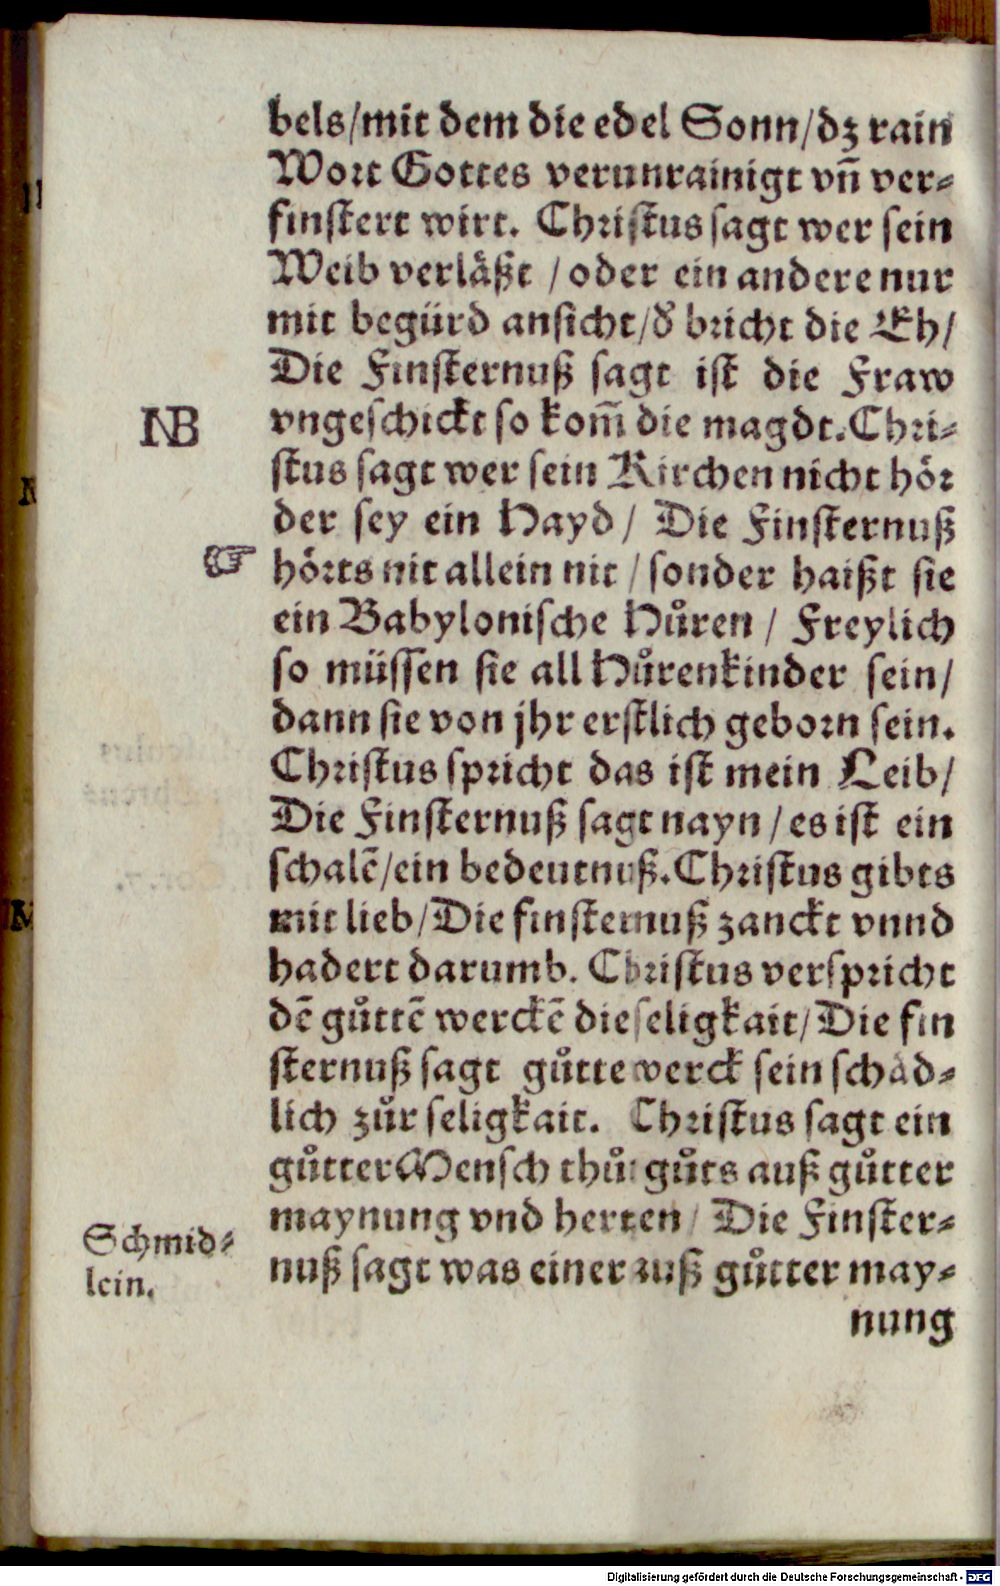 bels/mit dem die edel Sonn/dz rain
Wort Gottes verunrainigt vñ ver-
finstert wirt. Christus sagt wer sein
Weib verläßt / oder ein andere nur
mit begürd ansicht/d̕ bricht die Eh/
Die Finsternuß sagt ist die Fraw
NB
vngeschickt so kom̃ die magdt. Chri-
stus sagt wer sein Kirchen nicht hör
der sey ein Hayd / Die Finsternuß
☞ hörts nit allein nit / sonder haißt sie
ein Babylonische Hůren / Freylich
so müssen sie all Hůrenkinder sein/
dann sie von jhr erstlich geborn sein.
Christus spricht das ist mein Leib/
Die Finsternuß sagt nayn / es ist ein
schalē/ein bedeutnuß. Christus gibts
mit lieb/Die finsternuß zanckt vnnd
hadert darumb. Christus verspricht
dē gůttē werckē die seligkait/Die fin
sternuß sagt gůtte werck sein schäd-
lich zůr seligkait. Christus sagt ein
gůtter Mensch thůt gůts auß gůtter
maynung vnd hertzen / Die Finster-
Schmid-
lein.
nuß sagt was einer auß gůtter may-
nung
Digitalisierung gefördert durch die Deutsche Forschungsgemeinschaft - DFG